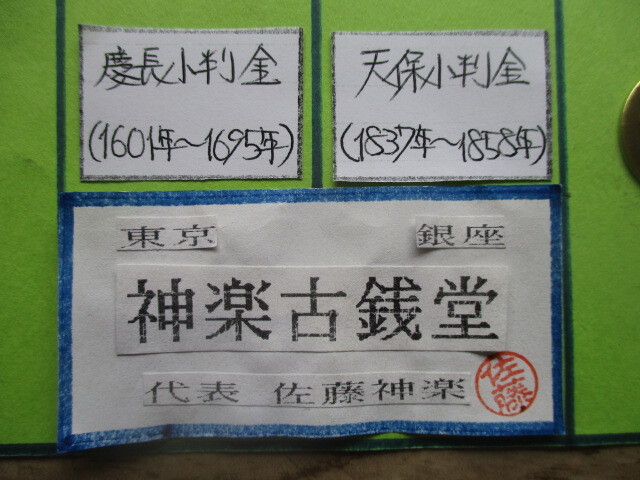 慶長小判金
(1601年～1695年)
天保小判金
(1837年～1858年)
東京 銀座
神楽古銭堂
代表 佐藤神楽
佐藤